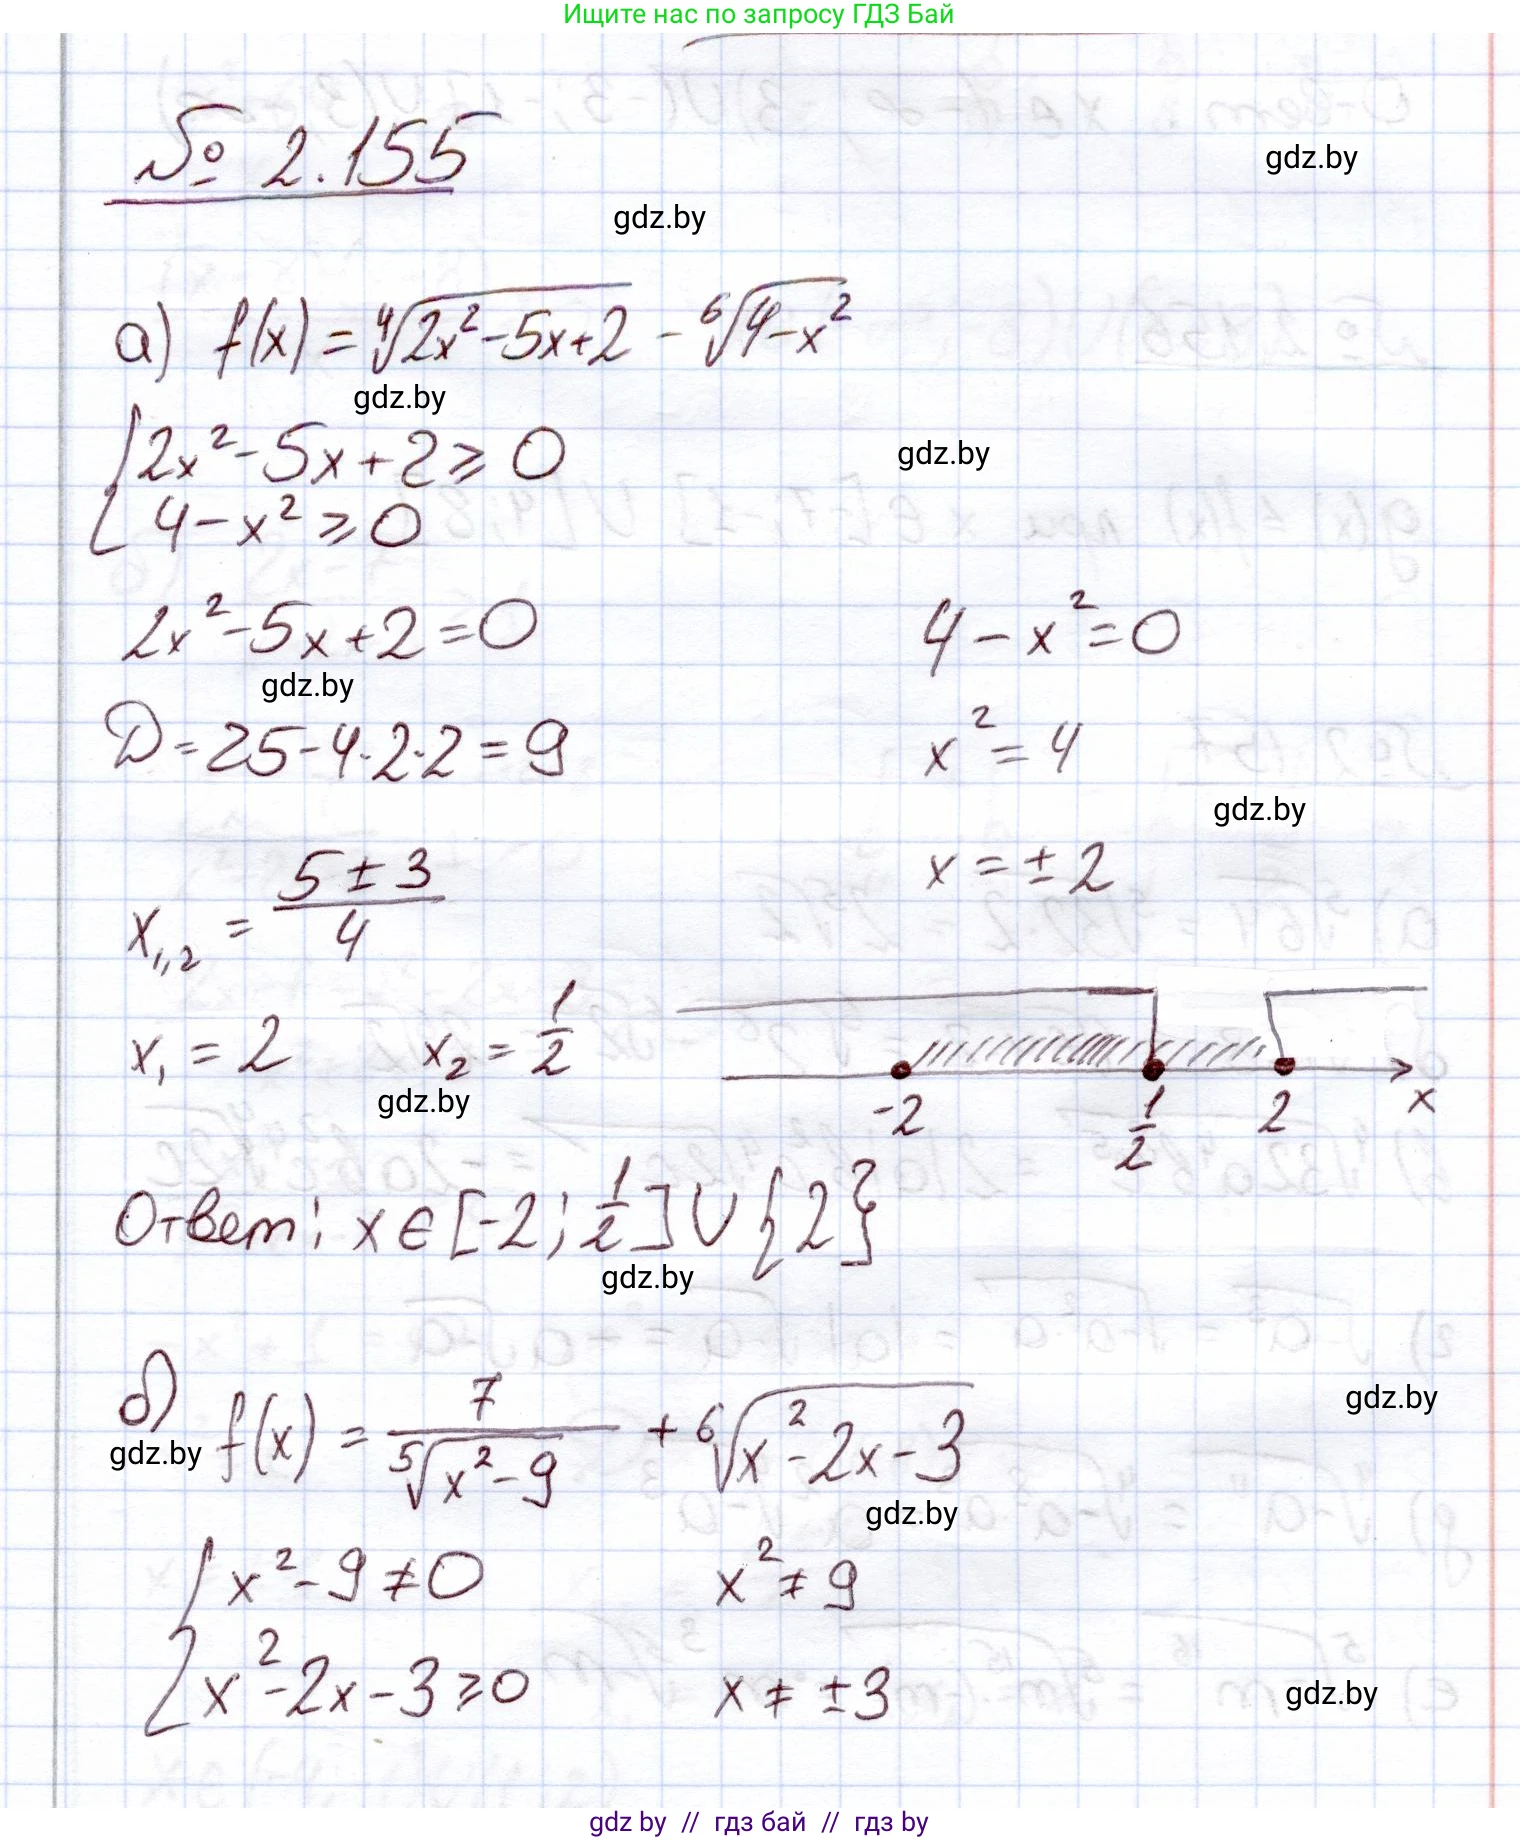 Ищите нас по запросу ГДЗ Бай
№ 2.155
gdz.by
gdz.by
а) f(x) = ⁴√(2x² - 5x + 2) - ⁶√(4 - x²)
gdz.by
{ 2x² - 5x + 2 ≥ 0
4 - x² ≥ 0
gdz.by
2x² - 5x + 2 = 0
4 - x² = 0
gdz.by
D = 25 - 4·2·2 = 9
x² = 4
gdz.by
x₁,₂ = (5 ± 3)/4
x = ± 2
x₁ = 2 x₂ = 1/2
gdz.by
-2 1/2 2 x
Ответ: x ∈ [-2; 1/2] ∪ {2}
gdz.by
б) f(x) = 7/⁵√(x² - 9) + ⁶√(x² - 2x - 3)
gdz.by
gdz.by
gdz.by
{ x² - 9 ≠ 0
x² ≠ 9
x² - 2x - 3 ≥ 0
x ≠ ± 3
gdz.by
gdz by // гдз бай // гдз by